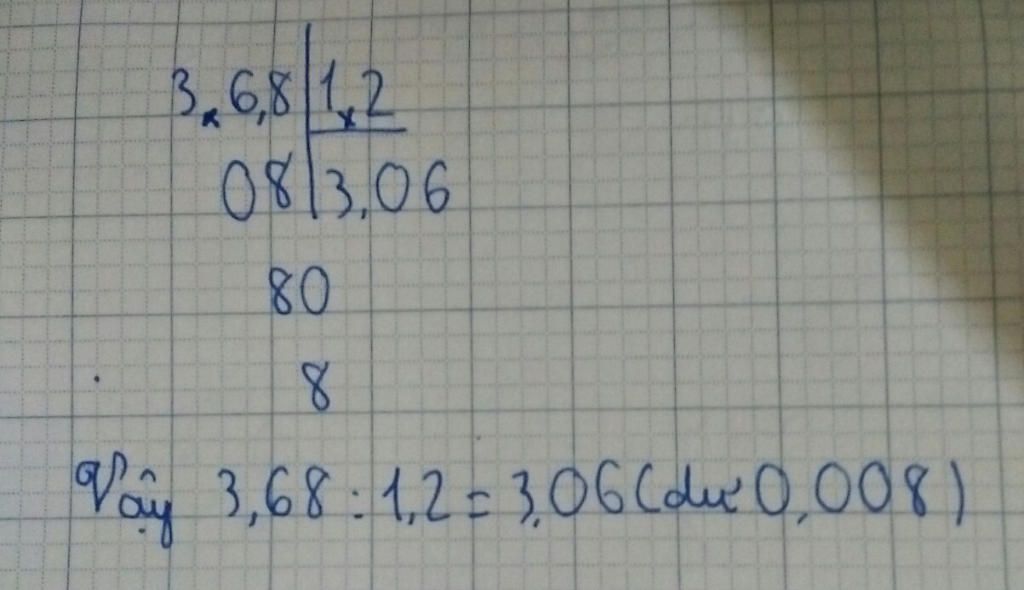 3,6,8 | 1,2
08 | 3,06
80
8
Vậy 3,68 : 1,2 = 3,06 (dư 0,008)